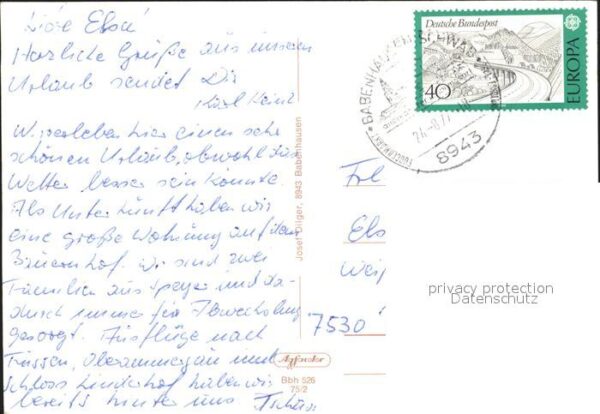 Liebe Elsa!
Herzliche Grüße aus unserem
Urlaub sendet Dir
Karl Heinz
Wir erleben hier einen sehr
schönen Urlaub, obwohl das
Wetter besser sein könnte.
Als Unterkunft haben wir
eine große Wohnung auf dem
Bauernhof. Wir sind zwei
Familien aus Speyer und da-
durch immer für Abwechslung
gesorgt. Ausflüge nach
Füssen, Oberammergau und
Schloss Linderhof haben wir
bereits hinter uns Tschüss
Josef Dilger, 8943 Babenhausen
Agfacolor
Bbh 526
75/2
Deutsche Bundespost
40
EUROPA
BABENHAUSEN, SCHWAB
24.-8.77
8943
Frl
Els
7530
privacy protection
Datenschutz